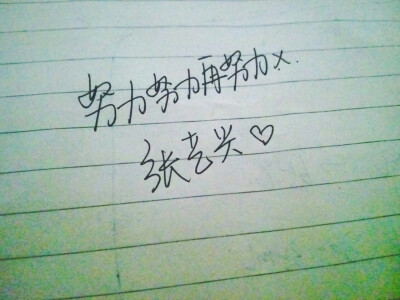 努力努力再努力x.
张艺兴♡